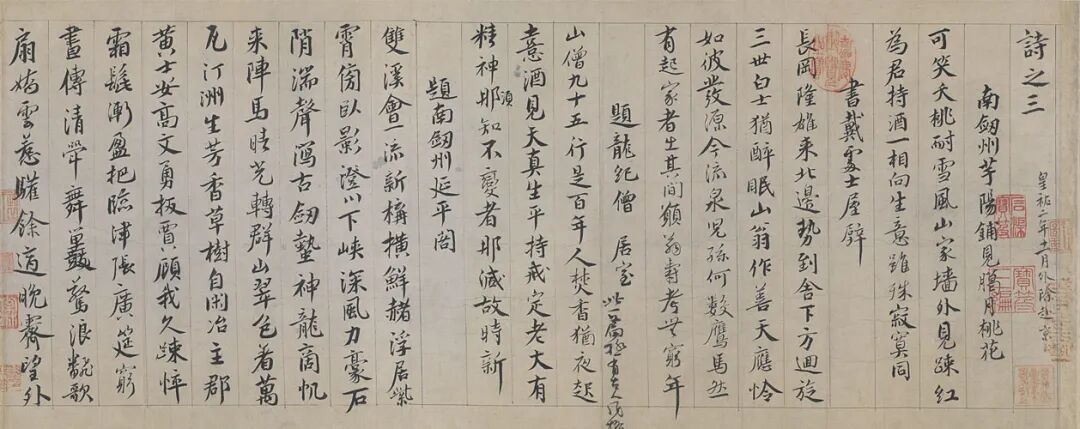 詩之三
皇祐二年十一月外除赴京
南劔州芋陽鋪見臘月桃花
可笑夭桃耐雪風山家墻外見踈紅
為君持酒一相向生意雖殊寂寞同
書戴處士屋壁
長岡隆雄來北邊勢到舍下方迴旋
三世白士猶醉眠山翁作善天應憐
如彼發源今流泉兒孫何數鷹馬然
有起家者生其間願翁壽考無窮年
題龍紀僧居室 此篇極有古人風格
山僧九十五行是百年人焚香猶夜起
憙酒見天真生平持戒定老大有
精神那須知不變者那減故時新
題南劔州延平閣
雙溪會一流新構橫鮮赭浮居紫
霄傍臥影澄川下峽深風力豪石
陗湍聲瀉古劔蟄神龍商帆
來陣馬晴光轉群山翠色着萬
瓦汀洲生芳香草樹自閑冶主郡
黃士安高文勇扳賈顧我久踈悴
霜髭漸盈把臨津張廣筵窮
晝傳清斝舞驚浪翻歌
扇嬌雲惹驩餘適晚霽望外